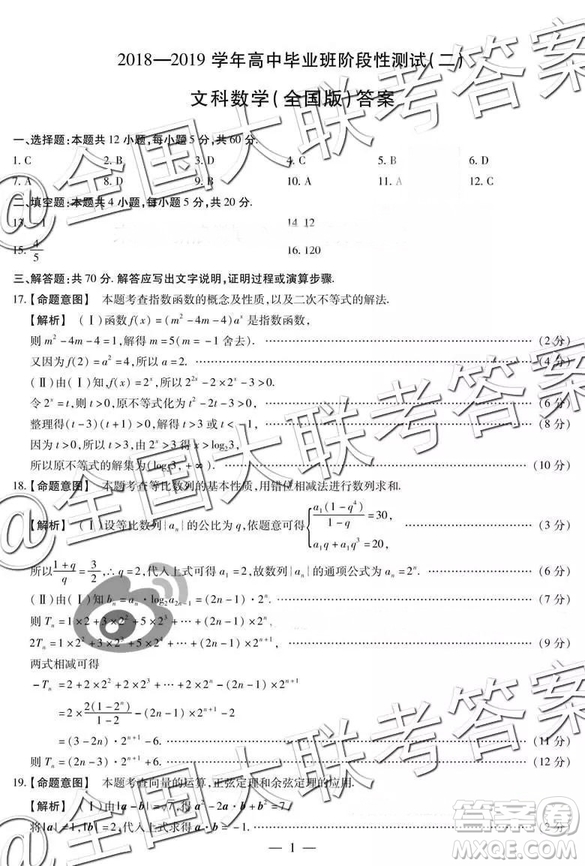 2018—2019 学年高中毕业班阶段性测试(二)
文科数学(全国版)答案
一、选择题:本题共 12 小题,每小题 5 分,共 60 分.
1. C 2. B 3. D 4. C 5. B 6. D
7. A 8. D 9. B 10. A 11. A 12. C
二、填空题:本题共 4 小题,每小题 5 分,共 20 分.
13. -1 14. 12
15. 4/5 16. 120
三、解答题:共 70 分. 解答应写出文字说明,证明过程或演算步骤.
17.【命题意图】 本题考查指数函数的概念及性质,以及二次不等式的解法.
【解析】 (Ⅰ)函数 f(x) = (m² - 4m - 4)aˣ 是指数函数,
则 m² - 4m - 4 = 1,解得 m = 5(m = -1 舍去). (2 分)
又因为 f(2) = a² = 4,所以 a = 2. (4 分)
(Ⅱ)由(Ⅰ)知,f(x) = 2ˣ,所以 2²ˣ - 2×2ˣ - 3 > 0.
令 2ˣ = t,则 t > 0,原不等式化为 t² - 2t - 3 > 0, (6 分)
整理得(t - 3)(t + 1) > 0,解得 t > 3 或 t < -1, (8 分)
因为 t > 0,所以 t > 3,由 2ˣ > 3 得 x > log₂3,
所以原不等式的解集为(log₂3, +∞). (10 分)
18.【命题意图】 本题考查等比数列的基本性质,用错位相减法进行数列求和.
【解析】 (Ⅰ)设等比数列{aₙ}的公比为 q,依题意可得 { a₁(1 - q⁴)/(1 - q) = 30, a₁q + a₁q³ = 20, (3 分)
所以 (1 + q)/q = 3/2,∴ q = 2,代入上式可得 a₁ = 2,故数列{aₙ}的通项公式为 aₙ = 2ⁿ. (6 分)
(Ⅱ)由(Ⅰ)知 bₙ = aₙ·log₂a₂ₙ₋₁ = (2n - 1)·2ⁿ. (7 分)
则 Tₙ = 1×2 + 3×2² + 5×2³ + … + (2n - 1)×2ⁿ,
2Tₙ = 1×2² + 3×2³ + 5×2⁴ + … + (2n - 1)×2ⁿ⁺¹, (9 分)
两式相减可得
-Tₙ = 2 + 2×2² + 2×2³ + … + 2×2ⁿ - (2n - 1)×2ⁿ⁺¹
= 2×2(1 - 2ⁿ)/(1 - 2) - 2 - (2n - 1)×2ⁿ⁺¹
= (3 - 2n)·2ⁿ⁺¹ - 6. (11 分)
则 Tₙ = (2n - 3)·2ⁿ⁺¹ + 6. (12 分)
19.【命题意图】 本题考查向量的运算,正弦定理和余弦定理的应用.
【解析】 (Ⅰ)由|a - b| = √7,得 a² - 2a·b + b² = 7,
将|a| = 1,|b| = 2,代入上式求得 a·b = -1. (2 分)
— 1 —
@全国大联考答案
答案圈
MXQE.COM